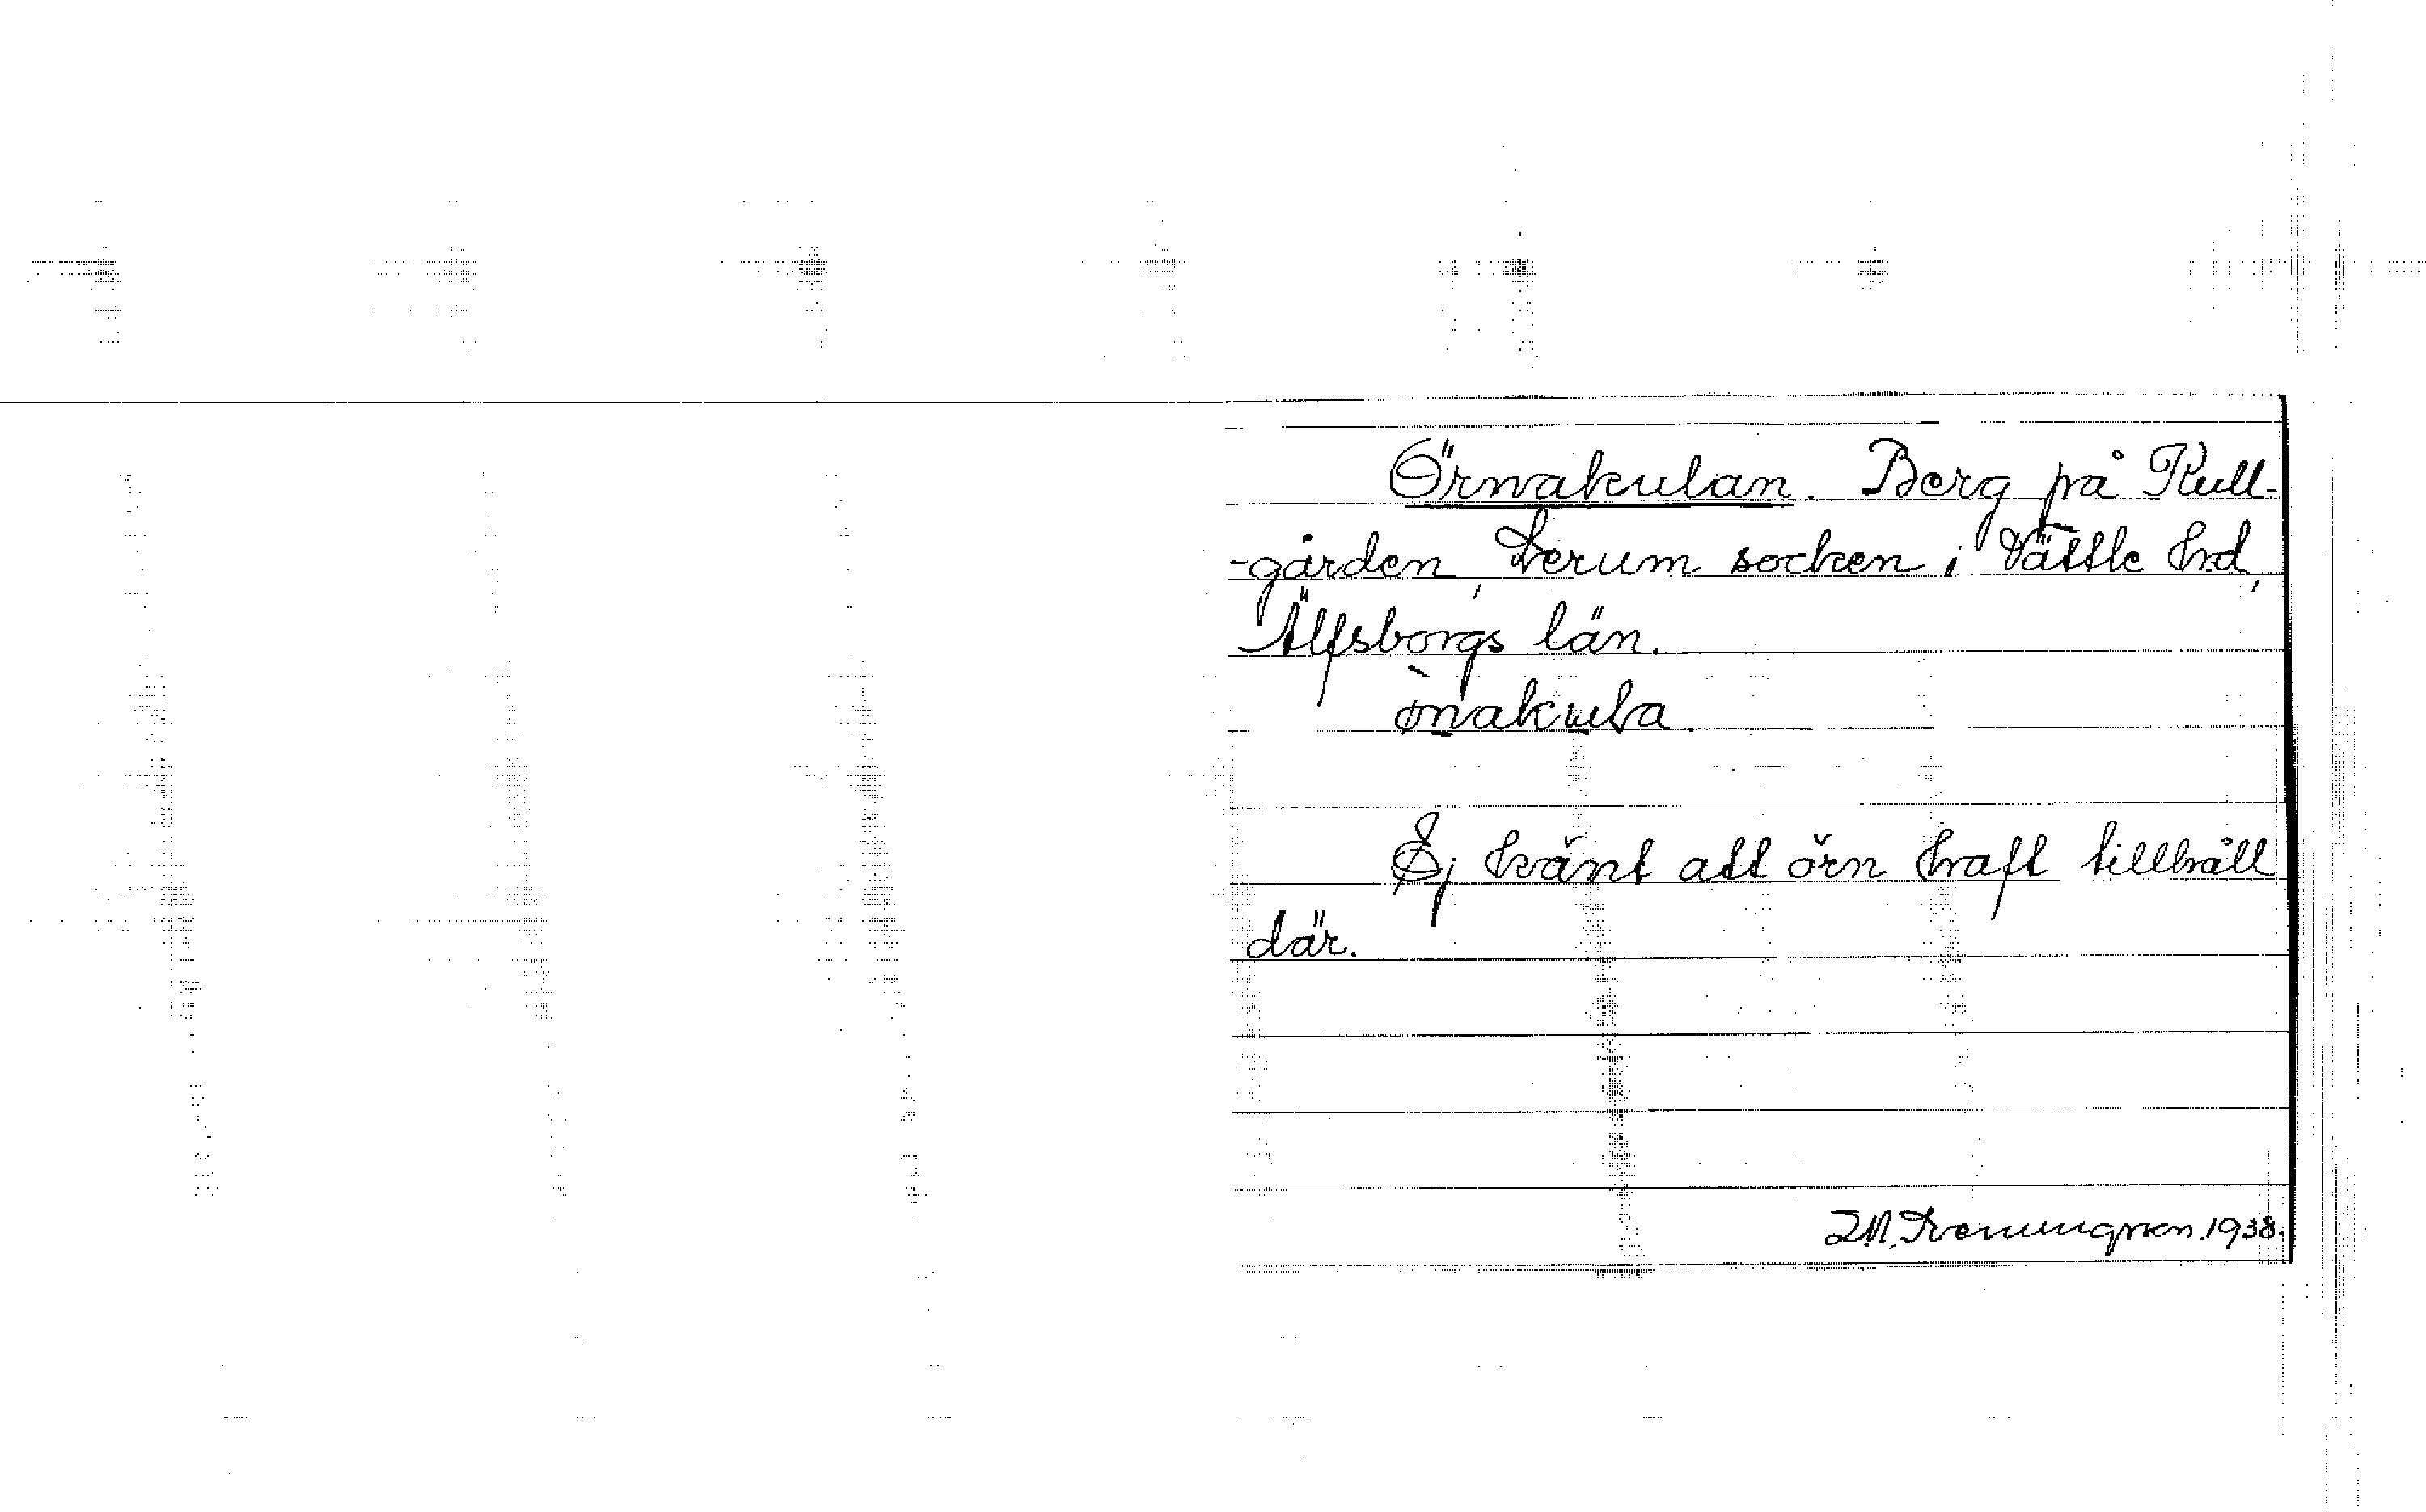 Örnakulan. Berg på Kull-
-gården, Lerum socken i Vättle hrd,
Älfsborgs län.
ò̤nakųla.
Ej känt att örn haft tillhåll
där.
1938.